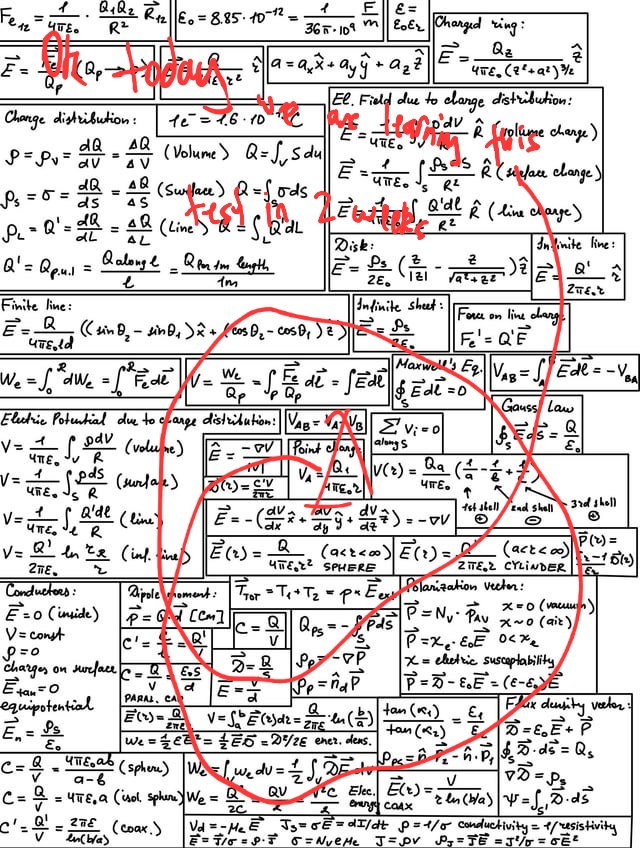 Fe₁₂ = 1/4πε₀ · Q₁Q₂/R² R⃗₁₂
ε₀ = 8.85·10⁻¹² = 1/36π·10⁹ F/m
ε = ε₀εr
Charged ring:
E⃗ = Qz/4πε₀(z²+a²)^3/2 ẑ
a = aₓx̂ + aᵧŷ + a_z ẑ
Ok today we are learning this
test in 2 weeks
Charge distribution:
1e⁻ = 1.6·10 C
ρ = ρv = dQ/dV = ΔQ/ΔV (Volume) Q = ∫v
ρs = σ = dQ/dS = ΔQ/ΔS (Surface) Q = ∫s σds
ρL = Q' = dQ/dL = ΔQ/ΔL (Line) Q = ∫L Q'dL
Q' = Qp.u.l = Q along l/l = Q per 1m length/1m
El. Field due to charge distribution:
E⃗ = 1/4πε₀ ∫v ρdV/R² R̂ (volume charge)
E⃗ = 1/4πε₀ ∫s ρs ds/R² R̂ (surface charge)
E⃗ = 1/4πε₀ ∫ Q'dl/R² R̂ (line charge)
Disk:
E⃗ = ρs/2ε₀ (z/|z| − z/√a²+z²) ẑ
Infinite line:
E⃗ = Q'/2πε₀r r̂
Finite line:
E⃗ = Q/4πε₀ld ((sinθ₂ − sinθ₁)x̂ + (cosθ₂ − cosθ₁)ẑ)
Infinite sheet:
E⃗ = ρs/2ε₀
Force on line charge
Fe' = Q'E⃗
We = ∫₀² dWe = ∫₀² F⃗e dl⃗
V = We/Qp = ∫p F⃗e/Qp dl⃗ = ∫E⃗dl⃗
Maxwell's Eq.
∮s E⃗dl⃗ = 0
VAB = ∫A E⃗dl⃗ = −VBA
Electric Potential due to charge distribution:
V = 1/4πε₀ ∫v ρdV/R (volume)
V = 1/4πε₀ ∫s ρds/R (surface)
V = 1/4πε₀ ∫l Q'dl/R (line)
V = Q'/2πε₀ ln rR/r (inf. line)
VAB = VA − VB
Σ Vi = 0
along S
Gauss Law
∮s E⃗ds⃗ = Q/ε₀
Ê = −∇V/|∇V|
D(r) = C'V/2πr
Point charge
VA = Q₁/4πε₀r
V(r) = Qa/4πε₀ (1/a − 1/b + 1/c)
1st shell ⊕ 2nd shell ⊖ 3rd shell ⊕
E⃗ = −(dV/dx x̂ + dV/dy ŷ + dV/dz ẑ) = −∇V
E⃗(r) = Q/4πε₀r² (a<r<∞) SPHERE
E⃗(r) = Q/2πε₀r² (a<r<∞) CYLINDER
Conductors:
E⃗ = 0 (inside)
V = const
ρ = 0
charges on surface
E⃗tan = 0
equipotential
E⃗n = ρs/ε₀
Dipole moment:
p⃗ = Q·d⃗ [Cm]
TTOT = T₁ + T₂ = p × E⃗ext
C' = C/l = Q'/V
C = Q/V = ε₀S/d
PARAL. CAP
C = Q/V
D⃗ = Q/S
E⃗ = V/d
QPS = −∮s P⃗ds⃗
ρp = −∇P⃗
ρp = n̂d P⃗
Polarization vector:
P⃗ = Nv · p⃗AV x=0 (vacuum)
x~0 (air)
P⃗ = χe · ε₀E⃗ 0<x₂
χ = electric susceptability
P⃗ = D⃗ − ε₀E⃗ = (ε−ε₀)E⃗
V = ∫ₐᵇ E⃗(r)dr = Q/2πε · ln(b/a)
we = ½εE² = ½E⃗D⃗ = D²/2E ener. dens.
tan(α₁)/tan(α₂) = ε₁/ε
ρPS = n̂·P⃗₂ − n̂·P⃗₁
Flux density vector:
D⃗ = ε₀E⃗ + P⃗
∮s D⃗·ds⃗ = Qs
∇D⃗ = ρs
Ψ = ∫s' D⃗·ds
C = Q/V = 4πε₀ab/a−b (sphere)
C = Q/V = 4πε₀a (isol. sphere)
C' = Q'/V = 2πε/ln(b/a) (coax.)
We = ∫v we dv = ½∫v D⃗E⃗ dv
We = Q²/2C = QV/2 = V²C/2 Elec. energy
E⃗(r) = V/r ln(b/a)
COAX
Vd = −μe E⃗ Js = σE⃗ = dI/dt ρ = 1/σ conductivity = 1/resistivity
E⃗ = J⃗/σ = ρ·J⃗ σ = Nveμe J = ρv ρJ = J⃗E⃗ = J²/σ = σE²